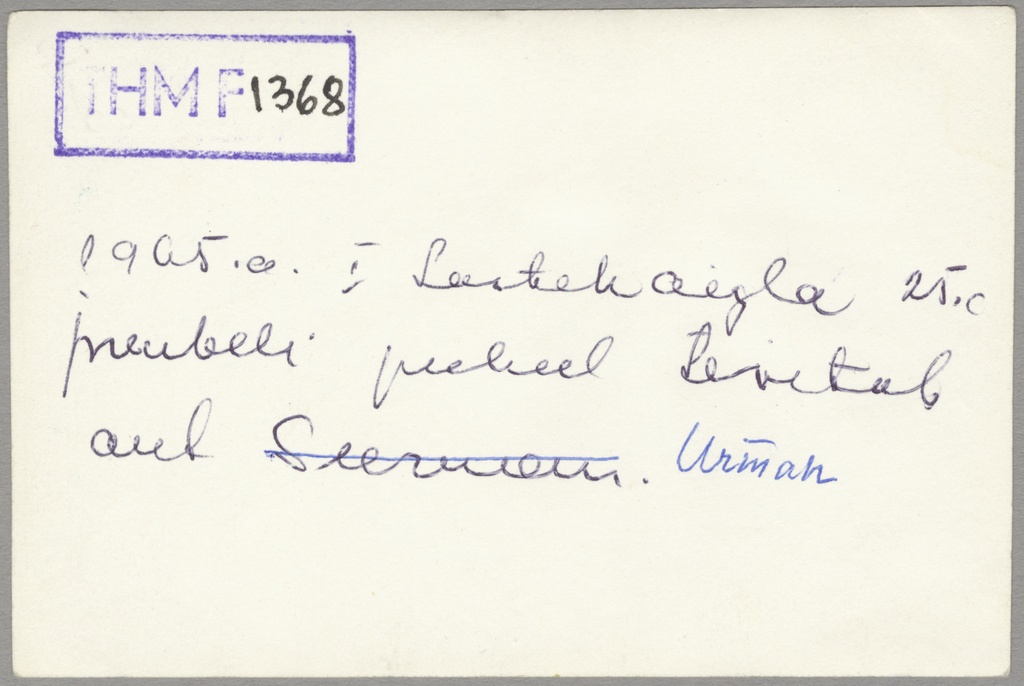 THM F 1368
1965.a. I Lastehaigla 25.a
juubeli puhul tervitab
arst Seermann. Urman